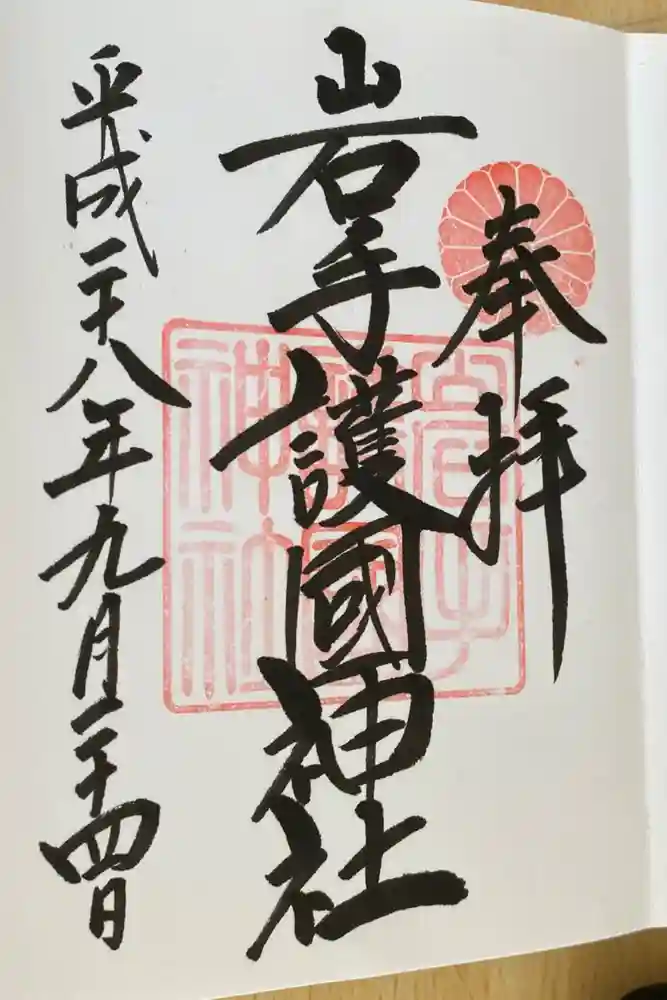 奉拝
岩手護國神社
平成二十八年九月二十四日
岩手護國神社